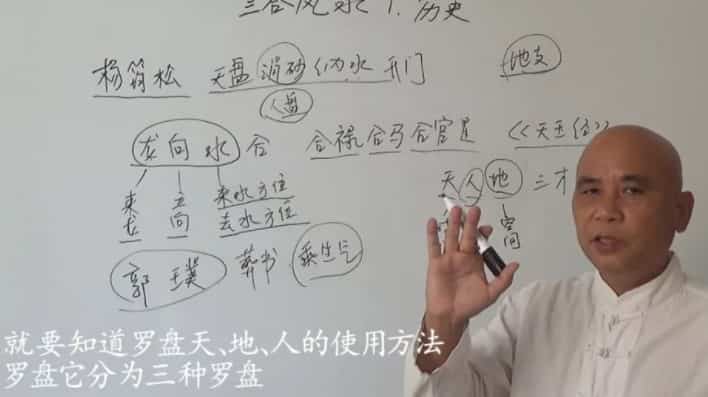 三合风水 1. 历史
杨筠松 天盘消砂纳水 开门 地支
人盘
龙向水合 合禄合马合官星 《天玉经》
天人地 三才
来龙 立向 来水方位
去水方位
空间
郭璞 葬书 乘生气
就要知道罗盘天、地、人的使用方法
罗盘它分为三种罗盘